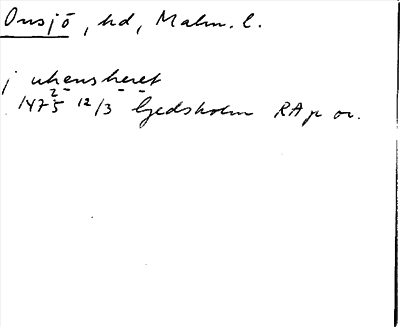 Onsjö, hd, Malm. l.
j uhensheret
1475 12/3 Gedsholm RAp or.
2